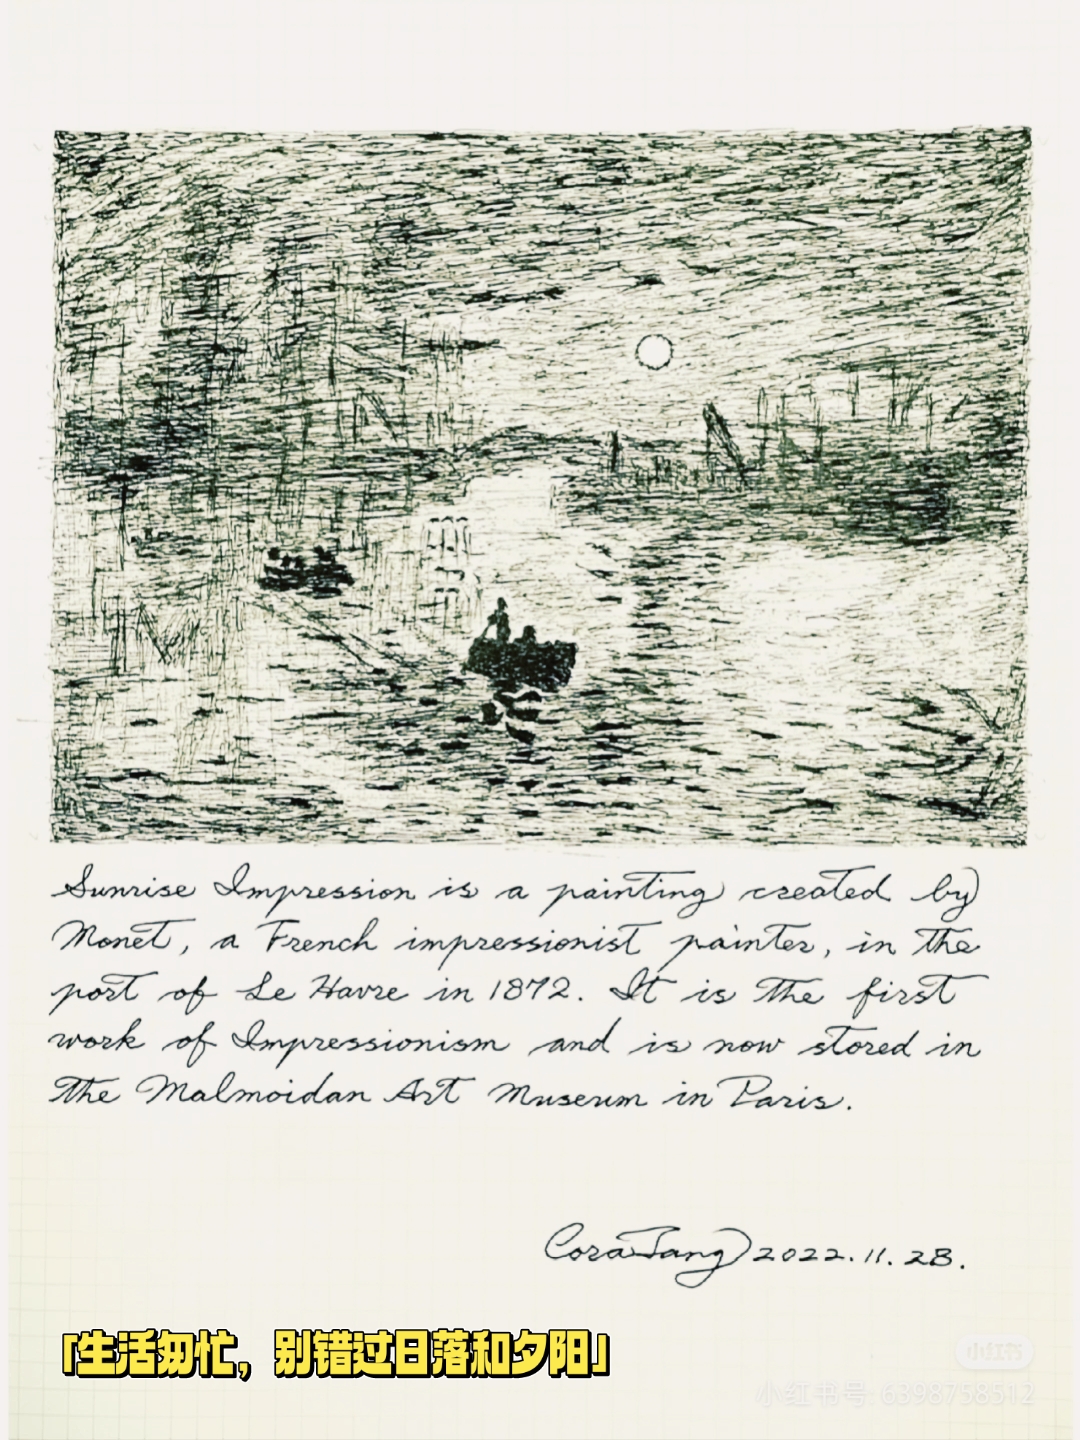 Sunrise Impression is a painting created by
Monet, a French impressionist painter, in the
port of Le Havre in 1872. It is the first
work of Impressionism and is now stored in
the Malmoidan Art Museum in Paris.
Cora Tang 2022.11.28.
「生活匆忙，别错过日落和夕阳」
小红书
小红书号: 6398758512